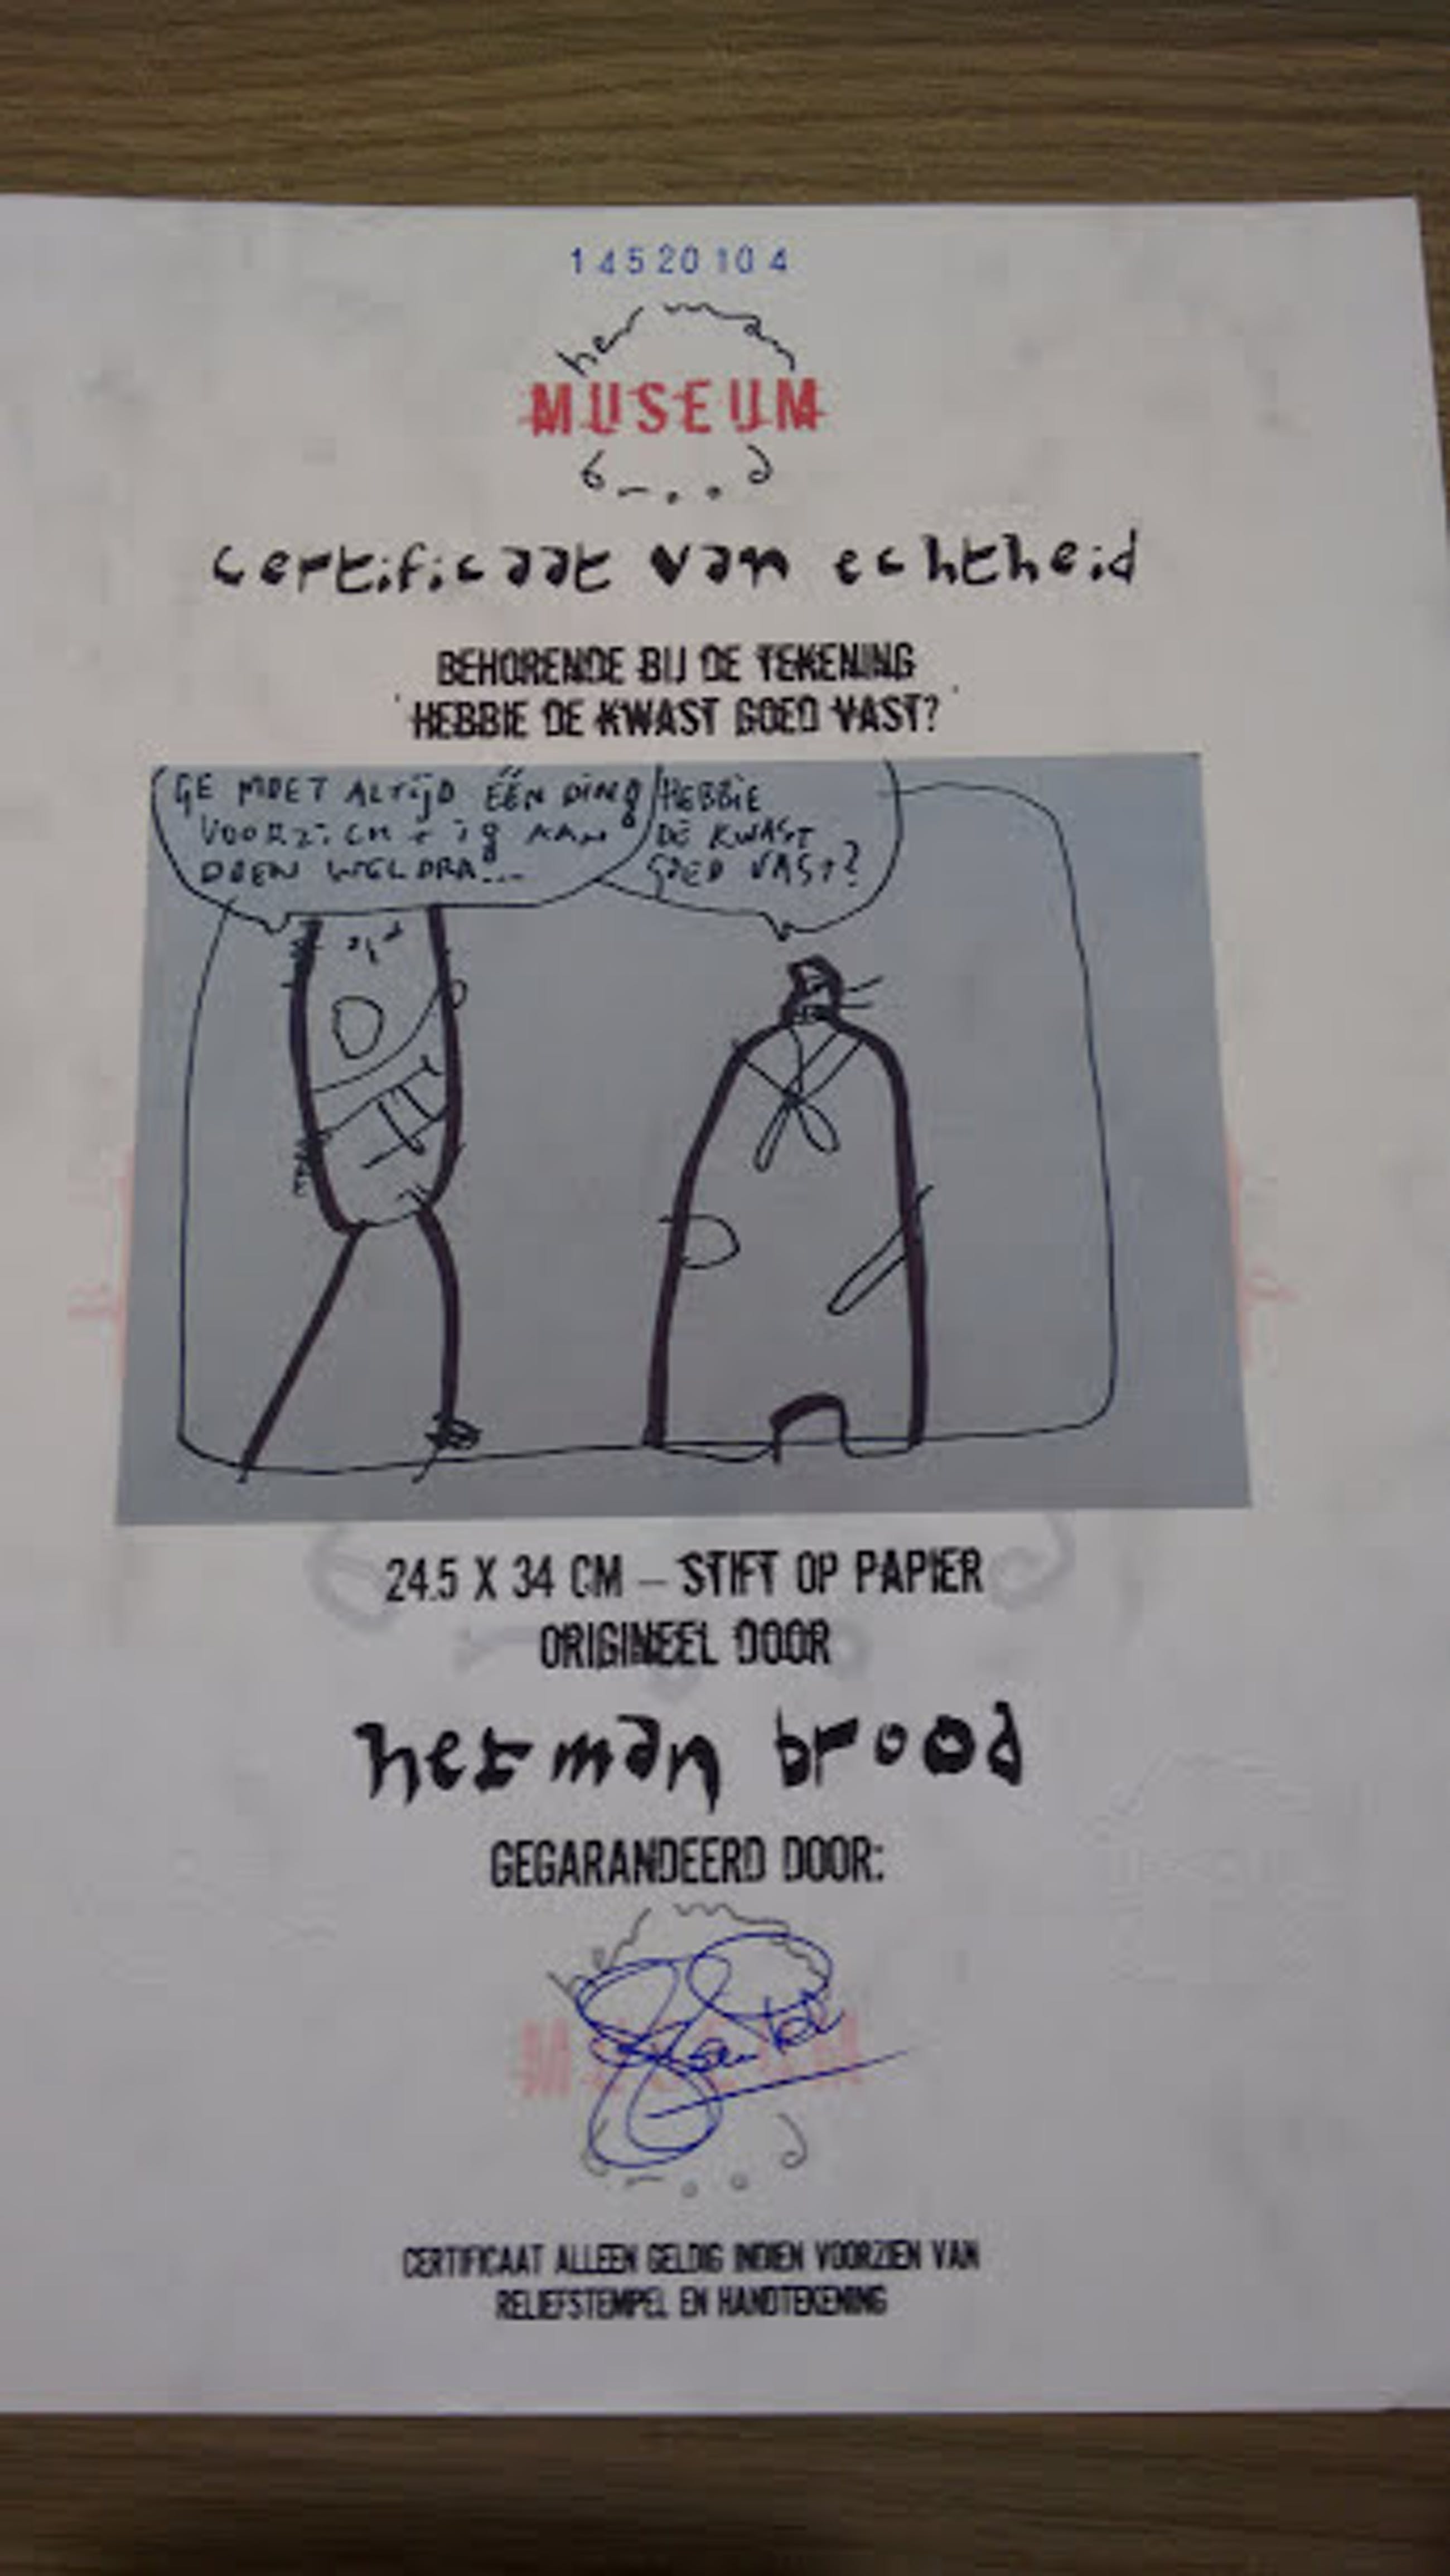 14520104
herman
MUSEUM
b...d
certificaat van echtheid
BEHORENDE BIJ DE TEKENING
HEBBIE DE KWAST GOED VAST?
GE MOET ALTIJD ÉÉN DING
VOORZICHTIG AAN
DOEN WELDRA...
HEBBIE
DE KWAST
GOED VAST?
24.5 X 34 CM – STIFT OP PAPIER
ORIGINEEL DOOR
herman brood
GEGARANDEERD DOOR:
MUSEUM
CERTIFICAAT ALLEEN GELDIG INDIEN VOORZIEN VAN
RELIEFSTEMPEL EN HANDTEKENING